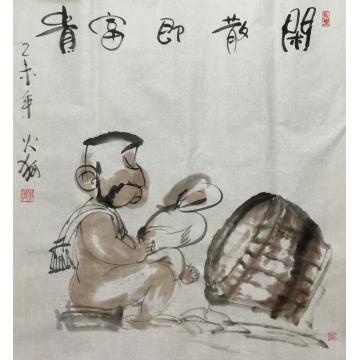 閑散即富貴
乙未年火